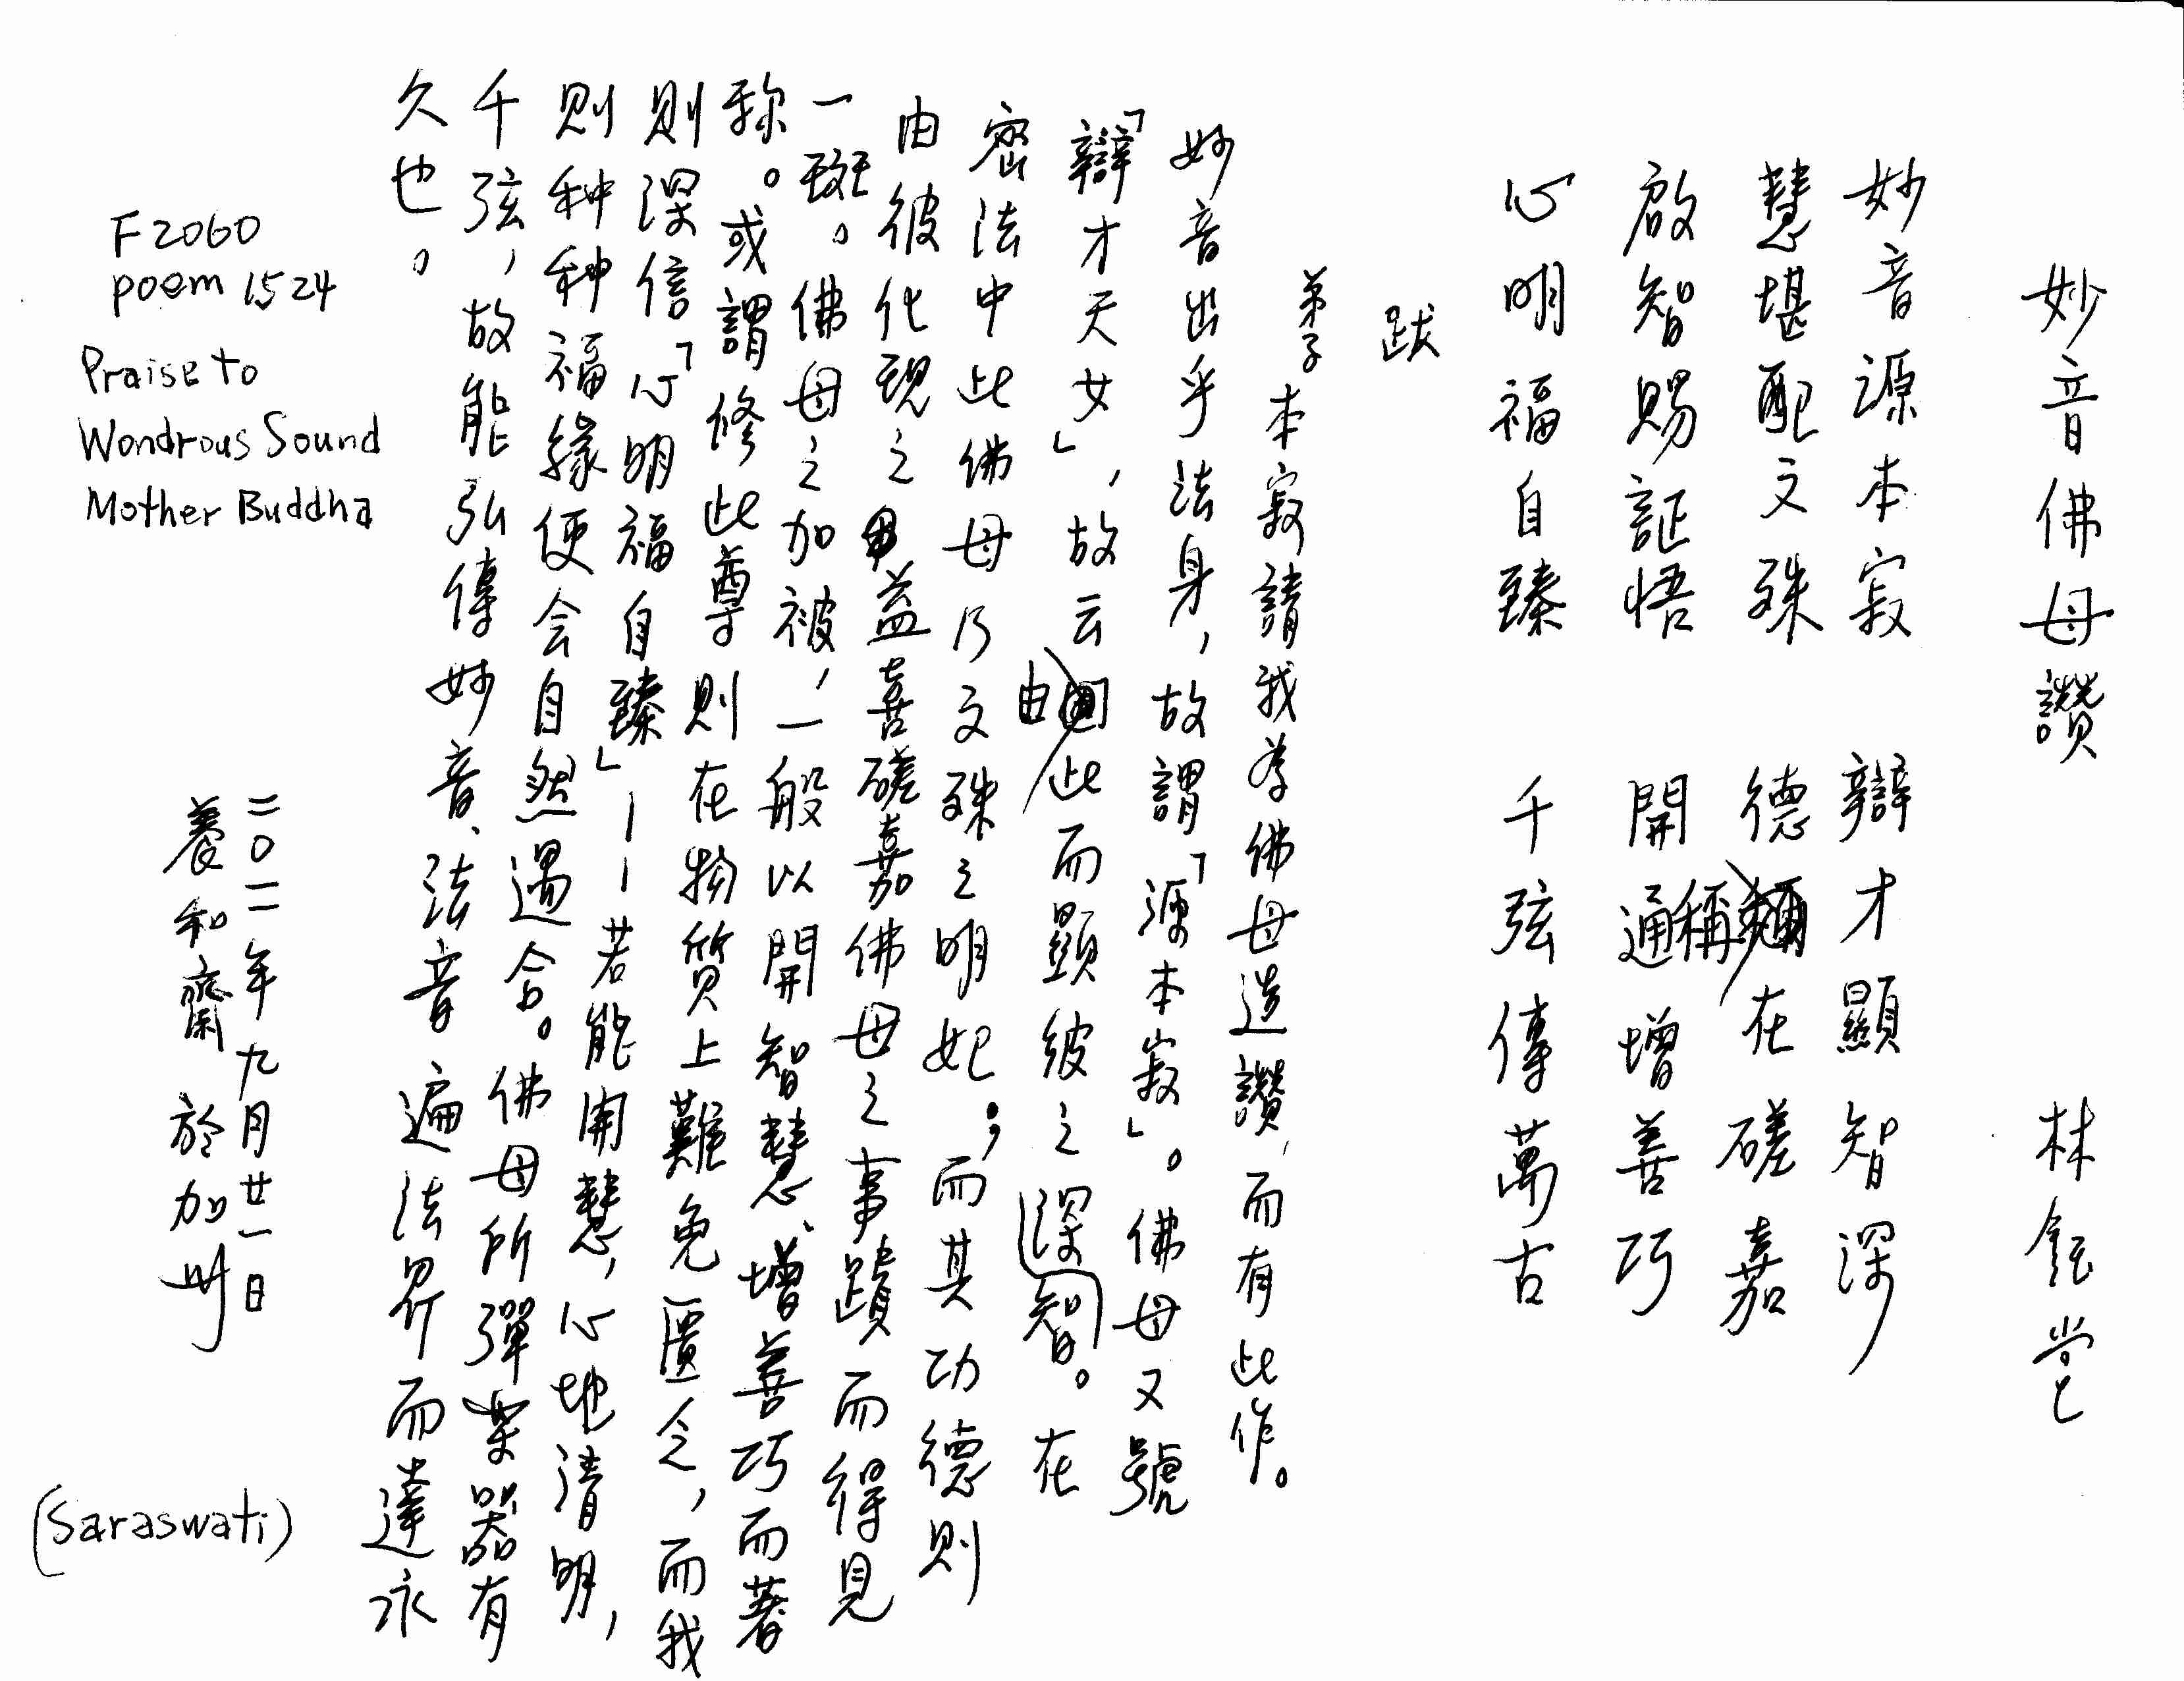 妙音佛母讚 林鈺堂
妙音源本寂 辯才顯智深
慧堪配文殊 德稱在磋嘉
啟智賜証悟 開通增善巧
心明福自臻 千弦傳萬古
跋
弟子本寂請我為佛母造讚，而有此作。
妙音出乎法身，故謂「源本寂」。佛母又號
「辯才天女」，故云由此而顯彼之深智。在
密法中此佛母乃文殊之明妃；而其功德則
由彼化現之男益喜磋嘉佛母之事蹟而得見
一斑。佛母之加被，一般以開智慧、增善巧而著
称。或謂修此尊則在物質上難免匱乏，而我
則深信「心明福自臻」——若能開慧，心地清明，
則种种福緣便会自然遇合。佛母所彈樂器有
千弦，故能弘傳妙音、法音遍法界而達永
久也。
二〇一一年九月廿一日
養和齋 於加州
F2060
poem 1524
Praise to
Wondrous Sound
Mother Buddha
(Saraswati)